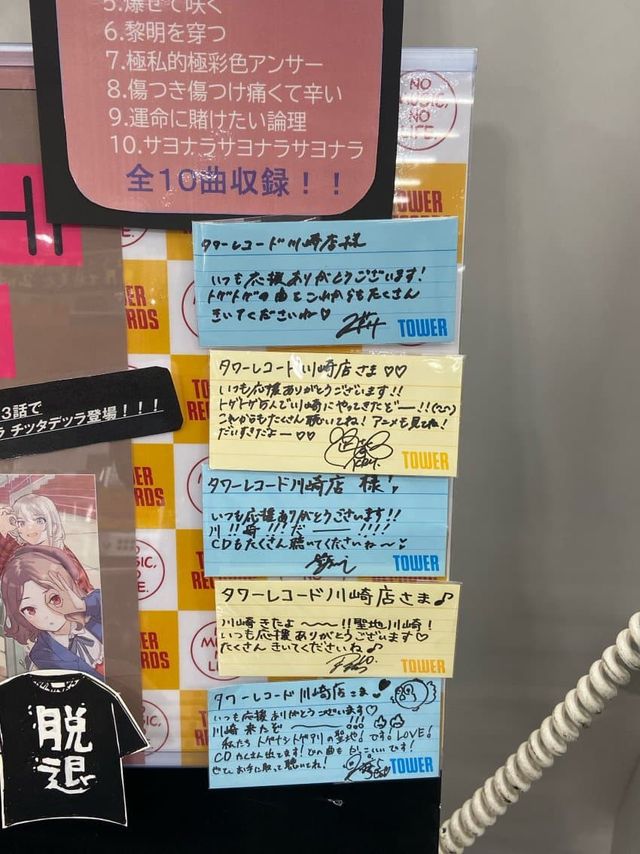 5.爆ぜて咲く
6.黎明を穿つ
7.極私的極彩色アンサー
8.傷つき傷つけ痛くて辛い
9.運命に賭けたい論理
10.サヨナラサヨナラサヨナラ
全10曲収録！！
NO MUSIC, NO LIFE.
TOWER RECORDS
タワーレコード川崎店様
いつも応援ありがとうございます!
トゲトゲの曲をこれからもたくさん
きいてくださいね♡
TOWER
タワーレコード川崎店さま♡♡
いつも応援ありがとうございます!!
トゲトゲ5人で川崎にやってきたどー!!
これからもたくさん聴いてね!アニメも見てね!
だいすきだよー♡♡
TOWER
3話で
チッタデッラ登場！！！
タワーレコード川崎店 様!
いつも応援ありがとうございます!!
川!!崎!!!だー!!!!
CDもたくさん聴いてくださいね〜
TOWER
タワーレコード川崎店さま♪
川崎きたよ〜〜!!聖地川崎!
いつも応援ありがとうございます♡
たくさんきいてくださいね♪
TOWER
タワーレコード川崎店さま
いつも応援ありがとうございます♡
川崎来たぞ!!!
私たちトゲナシトゲアリの聖地!です!LOVE!
CDたくさん出てます!どの曲も
ぜひ、お手に取って聴いてね!
TOWER
脱退